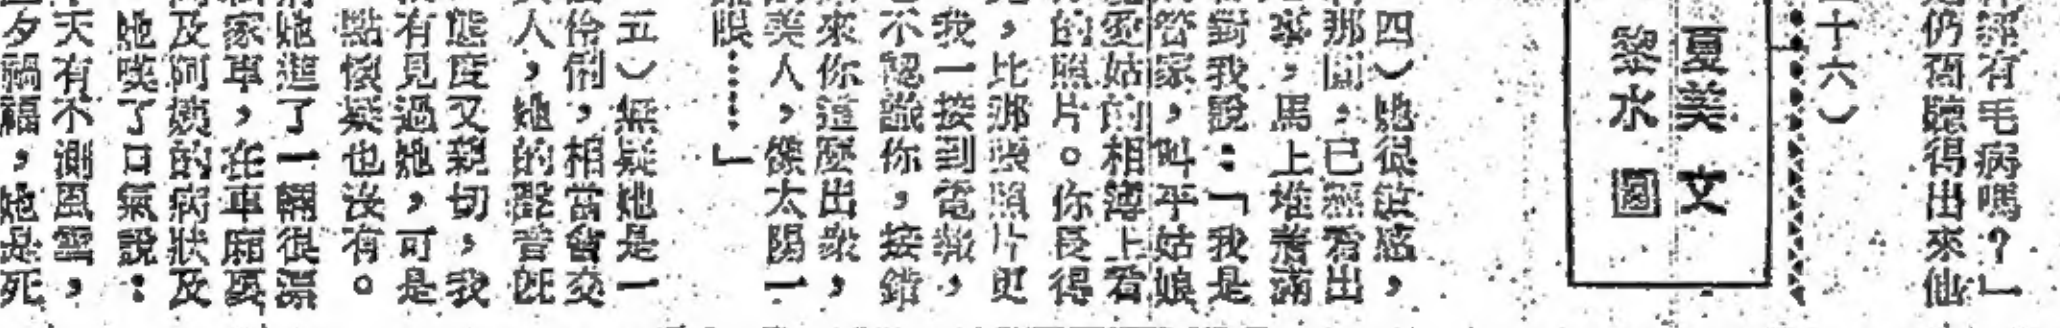 神經有毛病嗎？」
她仍舊聽得出來他
十六）
夏美 文
黎水 圖
四）她很敏感，
那關，已經看出
，馬上堆着滿
對我說：「我是
管家，叫平姑娘
愛姑的相簿上看
的照片。你長得
，比那張照片更
我一接到電報，
不認識你，接錯
來你這麼出衆，
美人，像太陽一
眼……」
五）無疑她是一
伶俐，相當會交
人，她的聲音旣
態度又親切，我
有見過她，可是
點懷疑也沒有。
她進了一輛很漂
家車，在車廂裏
及阿姨的病狀及
她嘆了口氣說：
天有不測風雲，
夕禍福，她是死